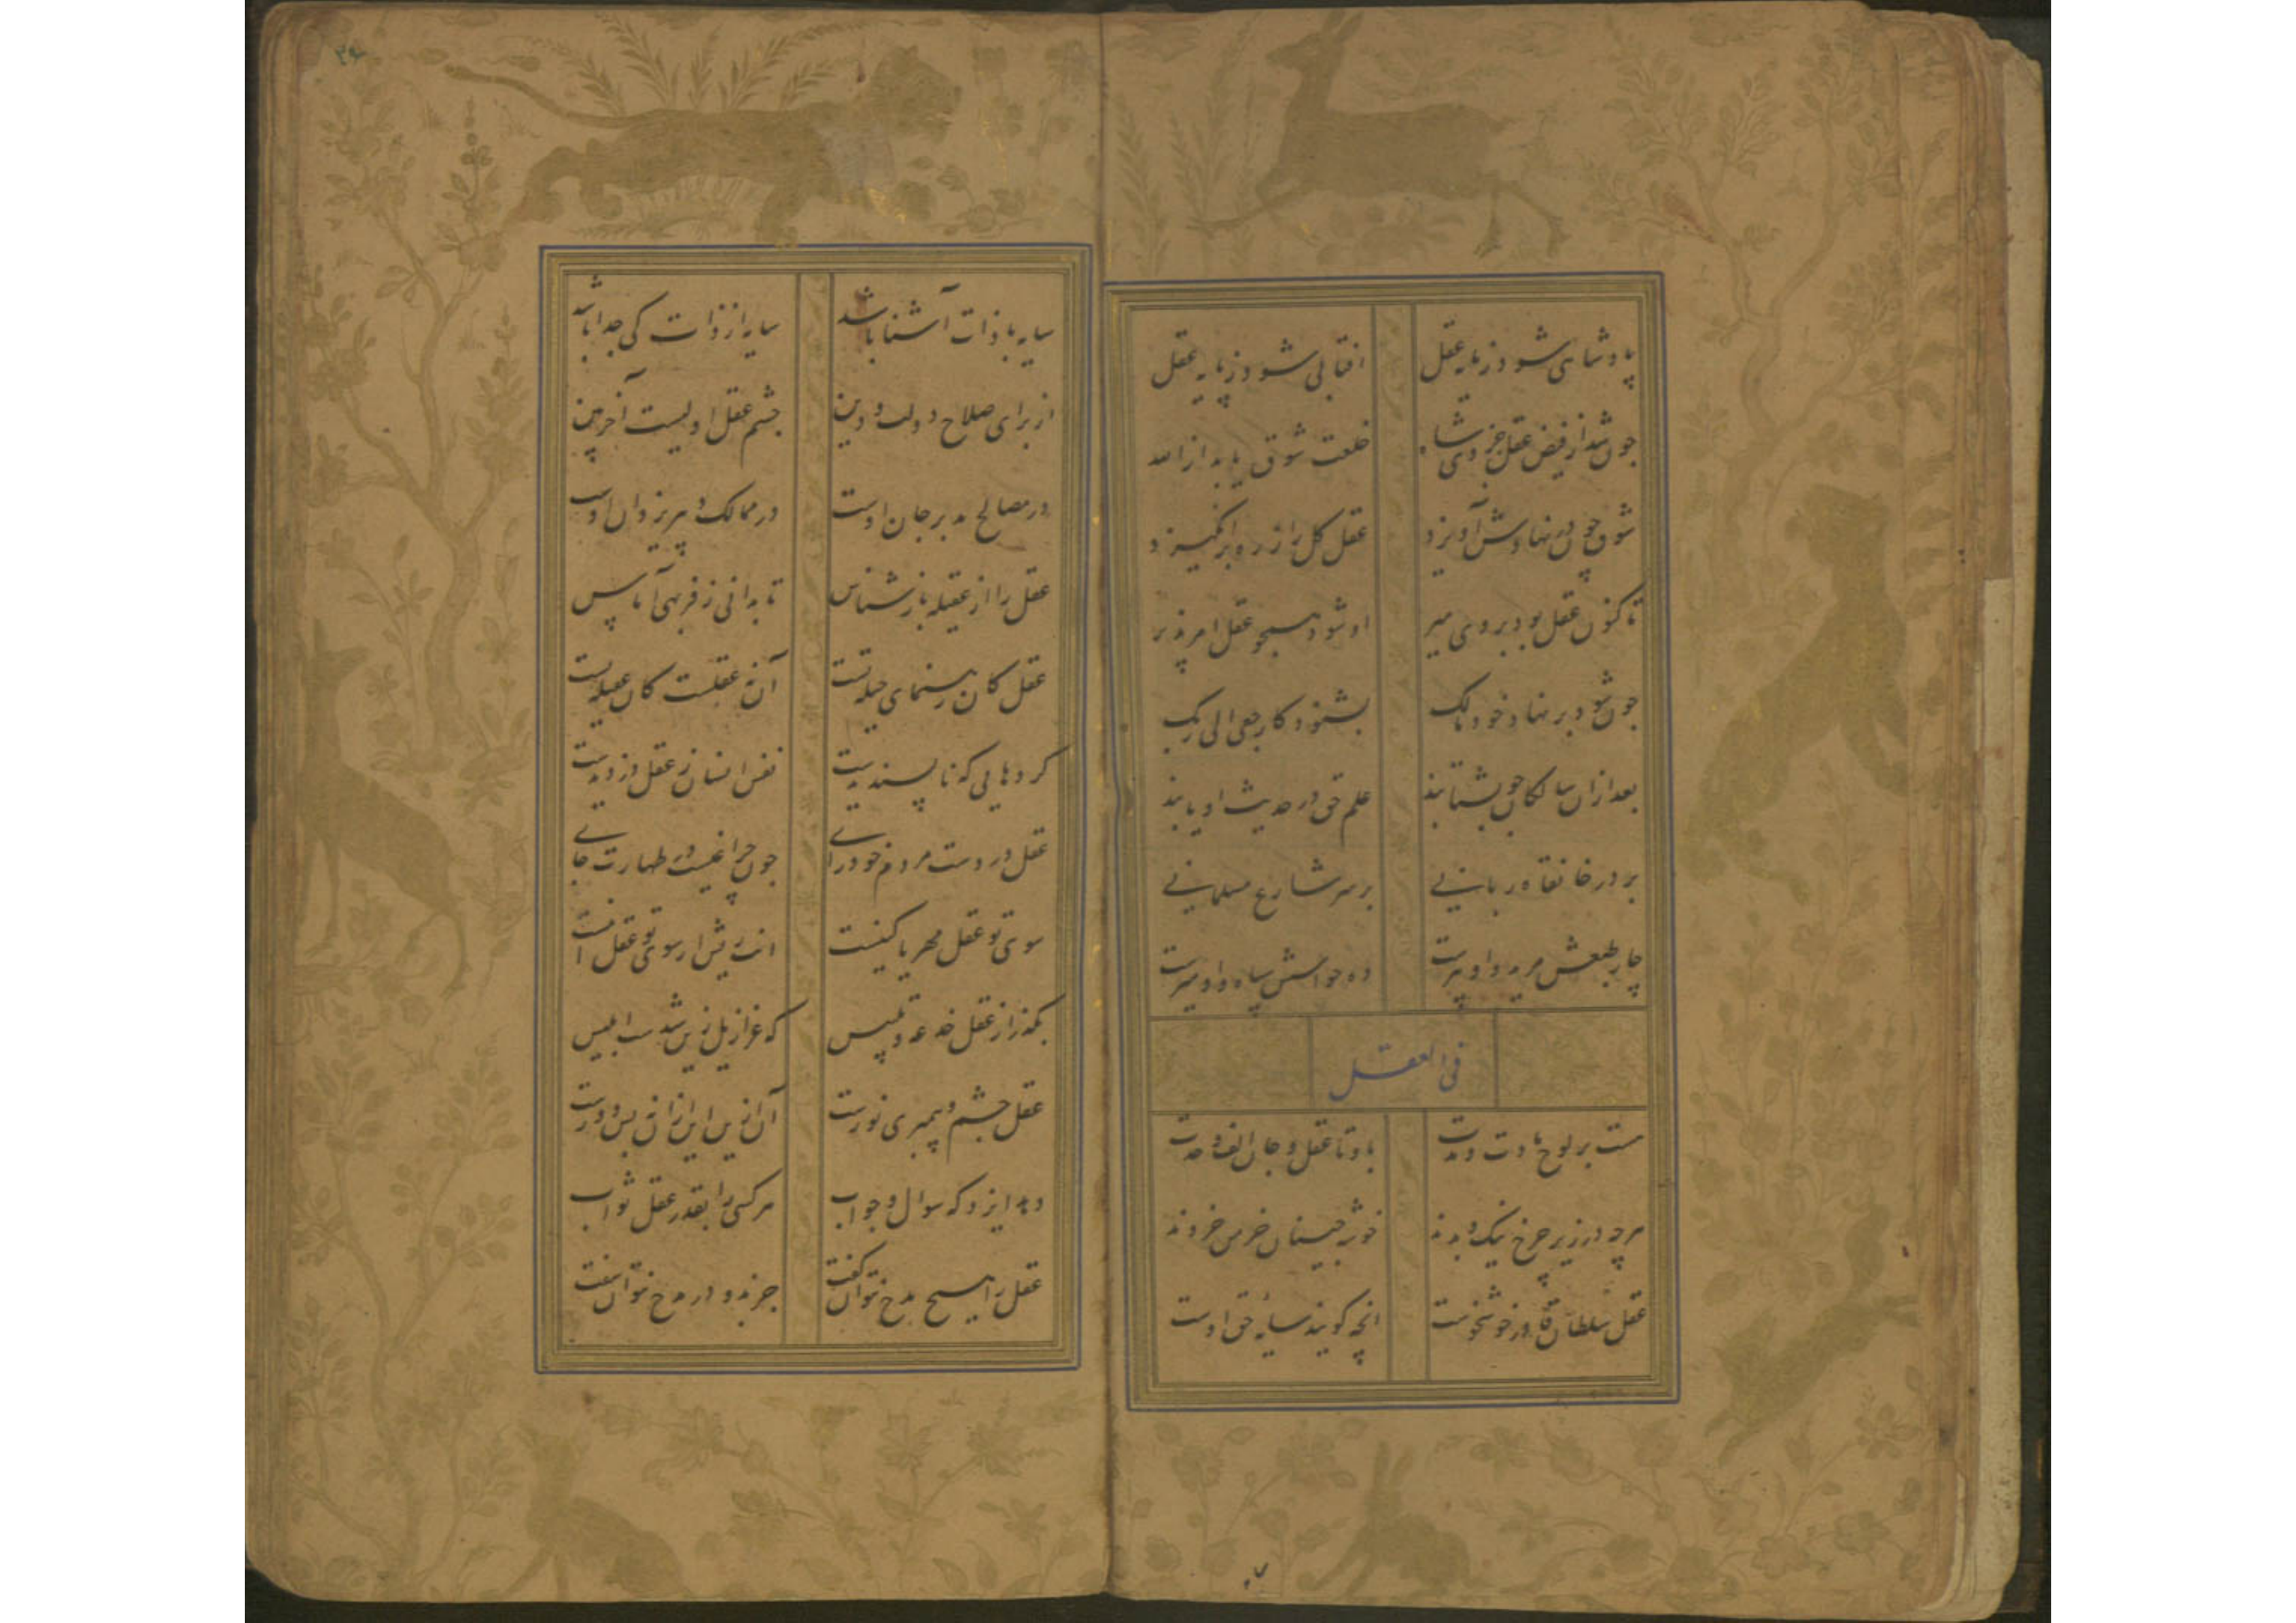 پادشاهی شود ز مایه عقل افتابی شود ز پایه عقل
چون شد از فیض عقل جزوی شاه خلعت شوق یابد از الله
شوق چون در نهادش آویزد عقل کل را ز ره برانگیزد
تا کنون عقل بود بروی میر او شود همچو عقل امر پذیر
چون شود بر نهاد خود مالک بشنود کارجعی الی ربک
بعد ازان سالکان چو بشتابند علم حق در حدیث او یابند
بر در خانقاه ربانی بر سر شارع مسلمانی
چار طبعش مرید و او پیرست ده حواسش سپاه و او میرست
فی العقل
هست بر لوح مادت و مدت با و تا عقل و جان الف وحدت
هرچه در زیر چرخ نیک و بدند خوشه چینان خرمن خردند
عقل سلطان قادر خوشخوست انچه کویند سایه حق اوست
۲۶
سایه با ذات آشنا باشد سایه از ذات کی جدا باشد
از برای صلاح دولت و دین چشم عقل اولیست آخربین
در مصالح مدبر جان اوست در ممالک دبیر یزدان اوست
عقل را از عقیله باز شناس تا بدانی ز فربهی آماس
عقل کان رهنمای حیله تست آن نه عقلست کان عقیله تست
کردهایی که ناپسندیدست نفس انسان ز عقل دزدیدست
عقل در دست مردم خودرای چون چراغیست در طهارت جای
سوی تو عقل مهر یا کینست
بکذر از عقل خدعه و تلبیس که عزازیل ازین شدست ابلیس
عقل چشم و پیمبری نورست آن ازین این ازان نه بس دورست
دید ایزد که سوال و جواب هر کسی را بقدر عقل ثواب
عقل را هیچ مدح نتوان کفت جز بدو در مدح نتوان سفت